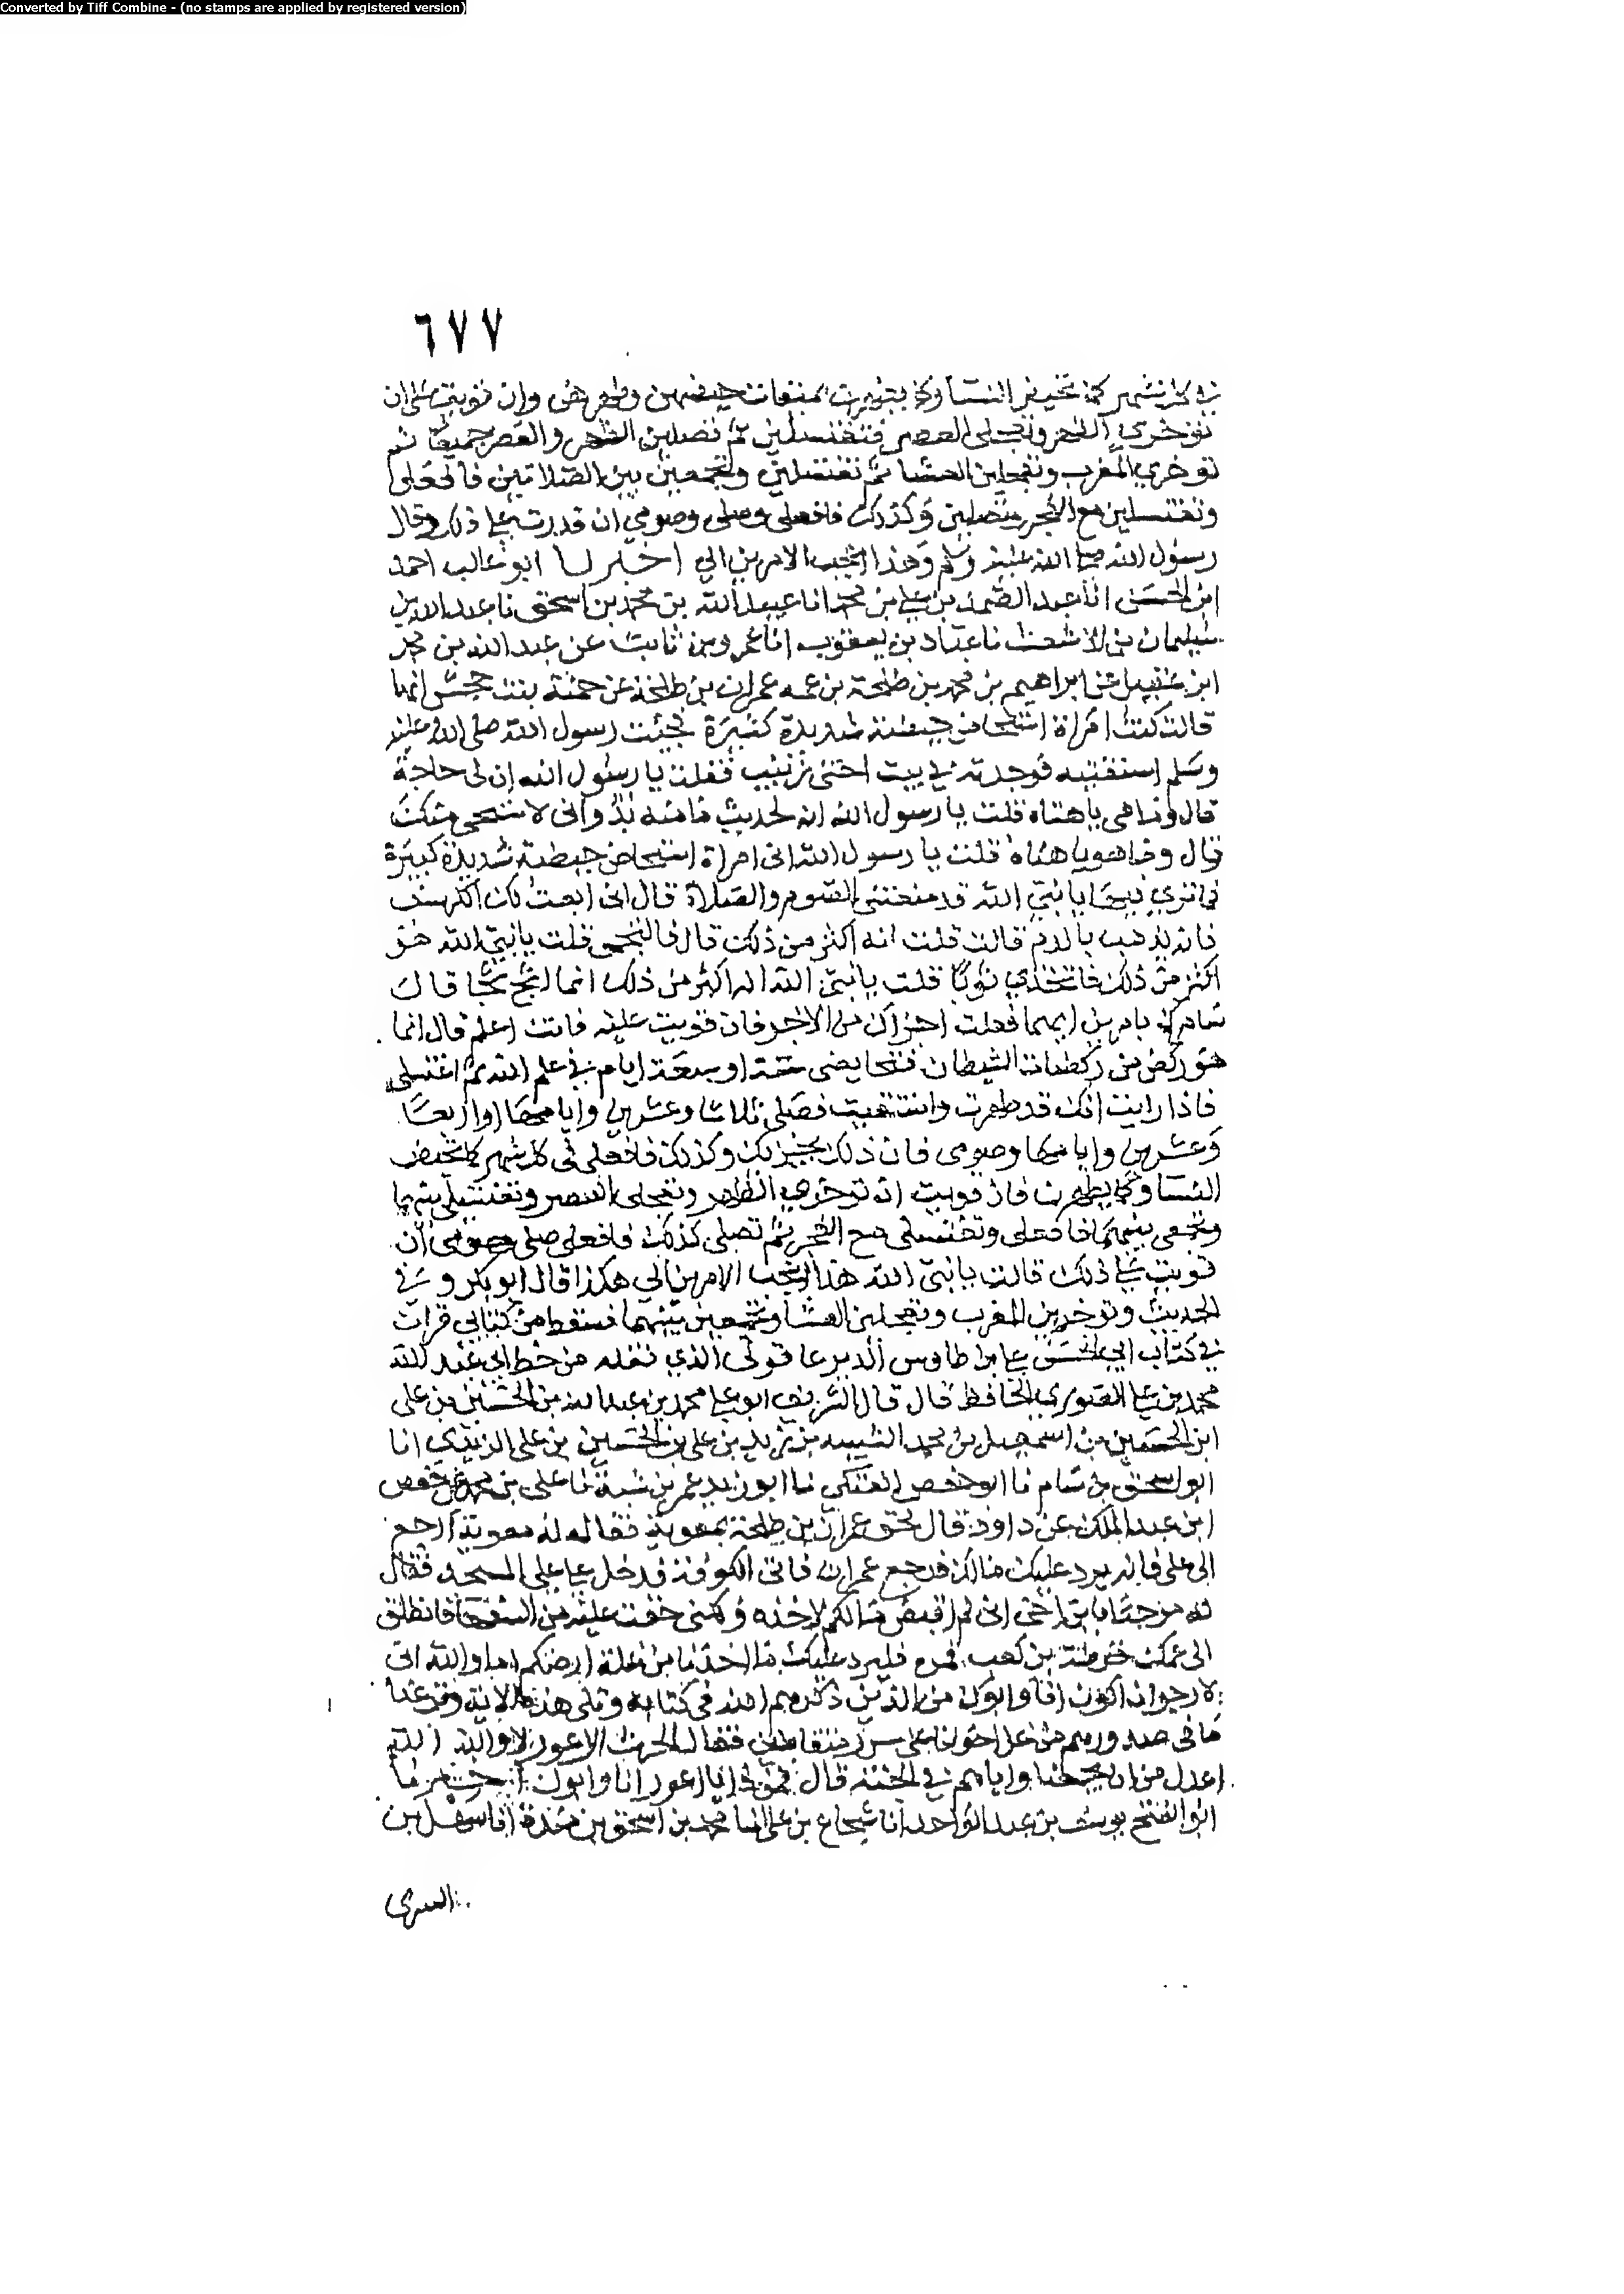 Converted by Tiff Combine - (no stamps are applied by registered version)
٦٧٧
في كل شهر كما تحيض النسا وكما يطهرن لميقات حيضهن وطهرهن وان قويت على ان
توخري الظهر وتعجلي العصر فتغتسلين ثم تصلين الظهر والعصر جميعا ثم
توخري المغرب وتعجلين العشا ثم تغتسلين وتجمعين بين الصلاتين فافعلي
وتغتسلين مع الفجر وتصلين وكذلك فافعلي وصلي وصومي ان قدرت على ذلك وقال
رسول الله صلى الله عليه وسلم وهذا اعجب الامرين الي اخبرنا ابو غالب احمد
ابن الحسن انا عبد الصمد بن علي بن محمد انا عبيد الله بن محمد بن اسحق نا عبد الله بن
سليمان بن الاشعث نا عباد بن يعقوب انا عمرو بن ثابت عن عبد الله بن محمد
ابن عقيل عن ابراهيم بن محمد بن طلحة بن عمه عمران بن طلحة عن حمنة بنت جحش انها
قالت كنت امراة استحاض حيضة شديدة كبيرة فجئت رسول الله صلى الله عليه
وسلم استفتيه فوجدته في بيت اختى زينب فقلت يا رسول الله ان لي حاجة
قال وما هي يا هنتاه قلت يا رسول الله انه لحديث ما منه بد وانى لاستحيى منك
قال وما هو يا هنتاه قلت يا رسول الله انى امراة استحاض حيضة شديدة كبيرة
فما ترى فيها يا نبي الله قد منعتني الصوم والصلاة قال انى ابعث لك الكرسف
فانه يذهب بالدم قالت قلت انه اكثر من ذلك قال فالتجمى قلت يا نبي الله هو
اكثر من ذلك فاتخذي ثوبا قلت يا نبي الله انه اكثر من ذلك انما اثج ثجا قال
سامرك بامرين ايهما فعلت اجزاك من الاخر فان قويت عليه فانت اعلم قال انما
هو ركض من ركضات الشيطان فتحايضى ستة او سبعة ايام في علم الله ثم اغتسلي
فاذا رايت انك قد طهرت واستنقيت فصلي ثلاثا وعشرين وايامها او اربعا
وعشرين وايامها وصومى فان ذلك يجزيك وكذلك فافعلي في كل شهر كما تحيض
النسا وكما يطهرن فان قويت ان توخري الظهر وتعجلى العصر وتغتسلي بينهما
وتجمعى بينهما فافعلي وتغتسلي مع الفجر ثم تصلي كذلك فافعلي صلي وصومى ان
قويت على ذلك قالت يا نبي الله هذا اعجب الامرين الي هكذا قال ابو بكر وفي
الحديث وتوخرين المغرب وتعجلين العشا وتجمعين بينهما فسقط من كتابي قرات
في كتاب ابي الحسن علي بن طاوس الديرعاقولى الذي نقله من خط ابي عبد الله
محمد بن علي الصوري الحافظ قال قال الشريف ابو علي محمد بن عبد الله بن الحسين بن على
ابن الحسين بن اسمعيل بن محمد الشبيه بن زيد بن على بن الحسين بن على الزيدي انا
ابو اسحق بن نا ابو حفص العتكي نا ابو زيد عمر بن شبة نا على بن عن حفص
ابن عبد الملك عن داود قال لحق عمران بن طلحة بمعوية فقال له معوية ارجع
الى على فانه يرد عليك مالك فرجع عمران فاتى الكوفة فدخل على علي المسجد فقال
له مرحبا يا بن اخى انى لم اقبض مالكم لاخذه ولكنى خفت عليه من السفها فانطلق
الى عمك قرظة بن كعب فمره فليرد عليك ما اخذنا من غلة ارضكم اما والله انى
لارجو ان اكون انا وابوك من الذين ذكرهم الله في كتابه وتلى هذه الاية ونزعنا
ما في صدورهم من غل اخوانا على سرر متقابلين فقال الحرث الاعور لا والله الله
اعدل من ان يجمعنا واياهم في الجنة قال فمن ذا يا اعور انا وابوك
ابو الفتح يوسف بن عبد الواحد انا شجاع بن على انا محمد بن اسحق بن مندة انا سهل بن
السرى